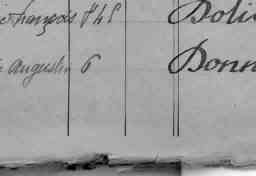 François 745 Doli
Augustin 6 Donn